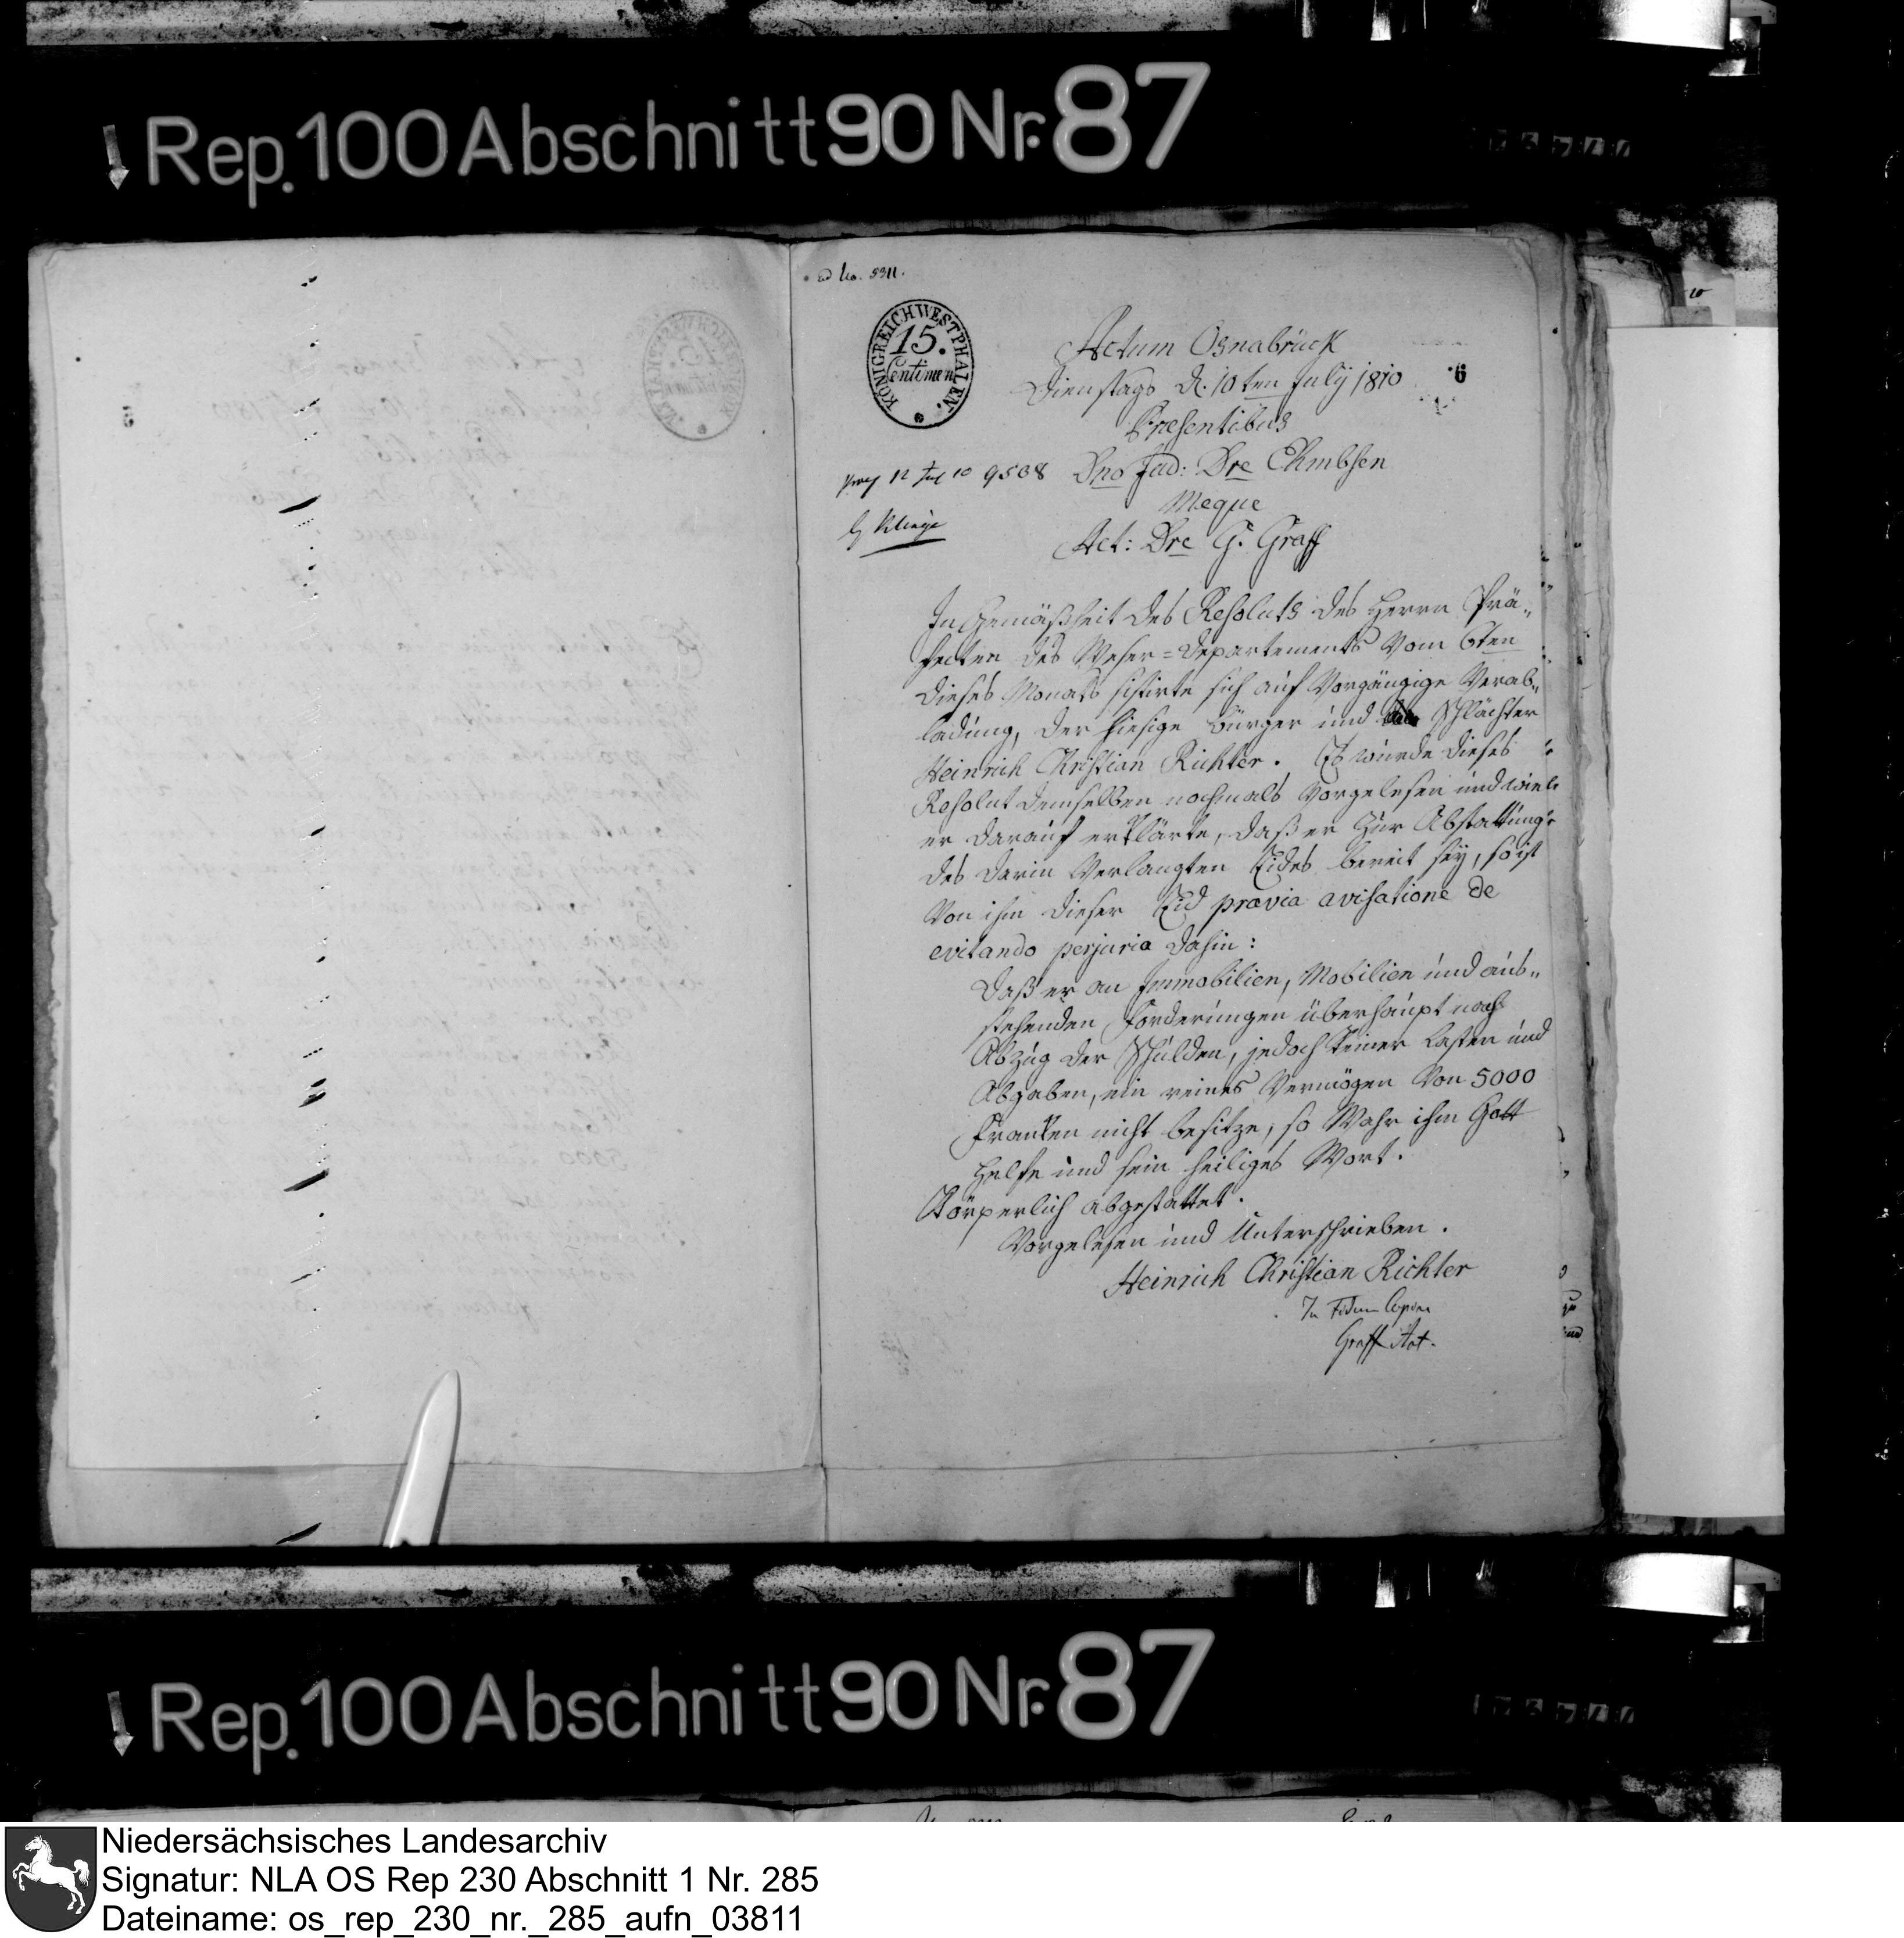 Rep. 100 Abschnitt 90 Nr. 87
ad No. 5311.
KÖNIGREICH WESTPHALEN.
15.
Centimen
6
10
Actum Osnabrück
Dienstags d. 10ten July 1810
Præsentibus
Dno Jud: Dre Ehmbsen
Meque
Act: Dre G. Graff
9508
In Gemäßheit des Resoluts des Herrn Prä„
fecten des Weser=Departements vom 6ten
dieses Monats sistirte sich auf vorgängige Verab„
ladung, der hiesige Bürger und Schlächter
Heinrich Christian Richter. Es wurde dieses
Resolut demselben nochmals vorgelesen und weil
er darauf erklärte, daß er zur Abstattung
des darin verlangten Eides bereit sey, so ist
von ihm dieser Eid prævia avisatione de
evitando perjuria dahin:
daß er an Immobilien, Mobilien und aus„
stehenden Forderungen überhaupt nach
Abzug der Schulden, jedoch keiner Lasten und
Abgaben, ein reines Vermögen von 5000
Franken nicht besitze, so wahr ihm Gott
helfe und sein heiliges Wort.
Körperlich abgestattet.
Vorgelesen und Unterschrieben.
Heinrich Christian Richter
In Fidem Copiae
Graff Act.
Rep. 100 Abschnitt 90 Nr. 87
Niedersächsisches Landesarchiv
Signatur: NLA OS Rep 230 Abschnitt 1 Nr. 285
Dateiname: os_rep_230_nr._285_aufn_03811